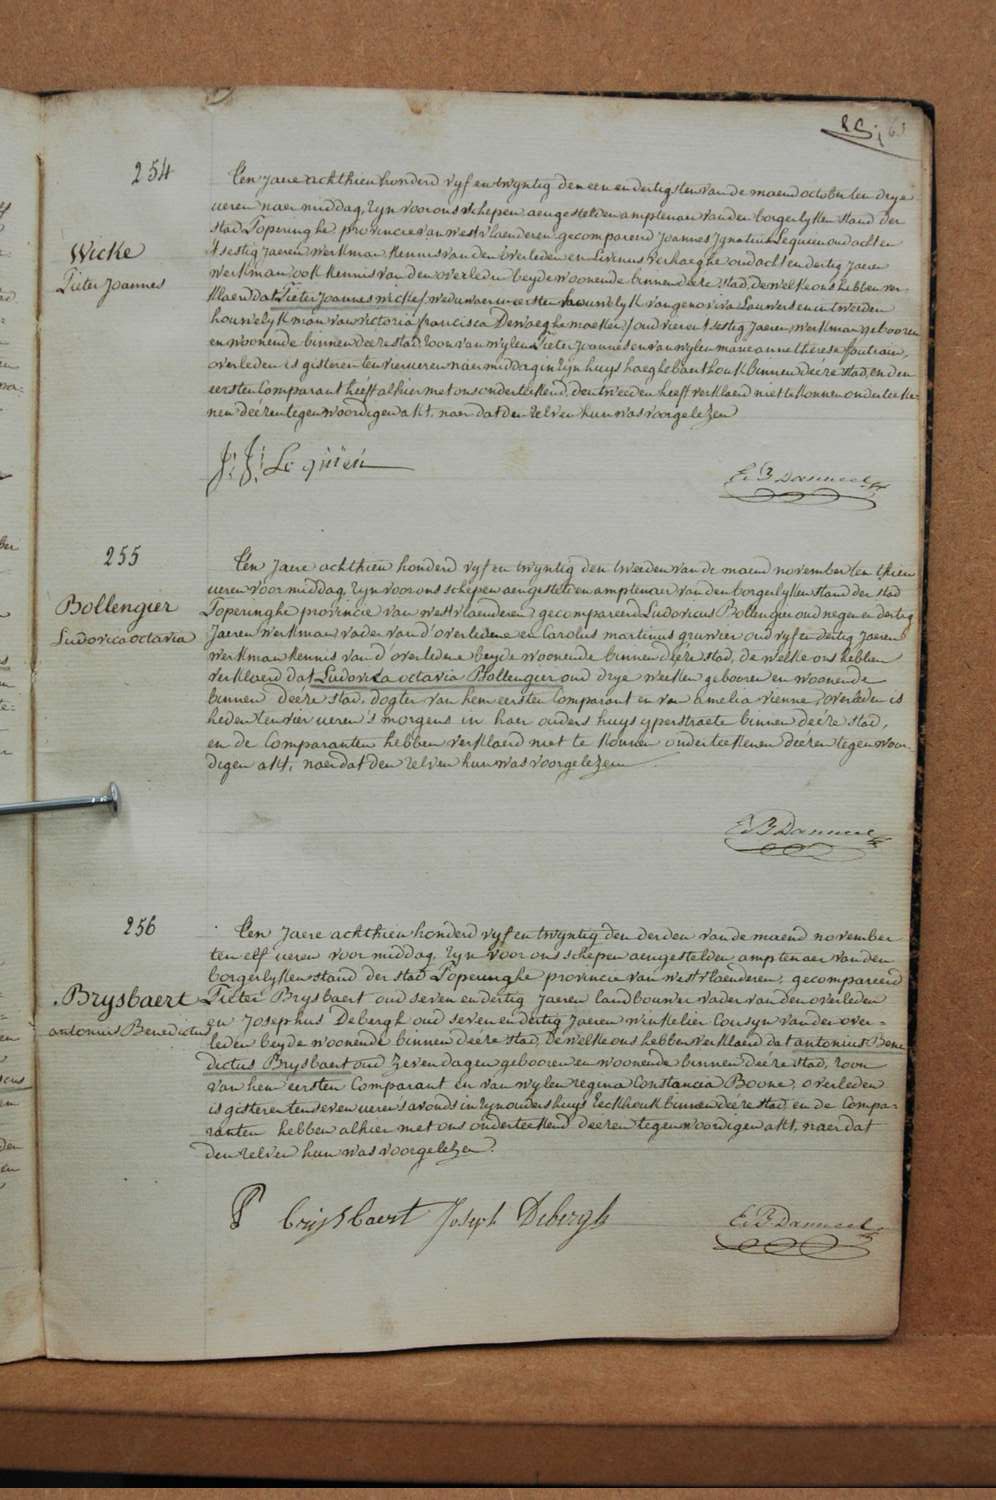 61
254
Wicke
Pieter Joannes
Ten jaere achthien honderd vyf en twyntig den een en dertigsten van de maend october ten drye
ueren naer middag, zyn voor ons schepen aengestelden amptenaer van den borgerlyken stand der
stad Poperinghe provincie van westvlaenderen, gecompareerd Joannes Ignatius Lequien oud acht en
t'sestig jaeren werkman kennis van den overleden en Livinus Verhaeghe oud acht en dertig jaeren
werkman ook kennis van den overleden beyde woonende binnen deéze stad, de welke ons hebben ver-
klaerd dat Pieter Joannes Wicke, weduwaer in eersten houwelyk van genoviva Lauwers en in tweeden
houwelyk man van victoria francisca Dewaeghemaeker, oud vier en t'sestig jaeren, werkman gebooren
en woonende binnen deéze stad, zoon van wylen Pieter Joannes en van wylen marie anne therese
overleden is gisteren ten vier ueren naer middag in zyn huys haeghebaerthouk binnen deéze stad, en den
eersten Comparant heeft alhier met ons onderteekend, den tweeden heeft verklaerd niet te konnen onderteeke-
nen deézen tegenwoordigen akt, naer dat den zelven hun was voorgelezen
J: J: Lequien
E: B Danneel
255
Bollengier
Ludovica octavia
Ten jaere achthien honderd vyf en twyntig den tweeden van de maend november ten thien
ueren voor middag, zyn voor ons schepen aengestelden amptenaer van den borgerlyken stand der stad
Poperinghe provincie van westvlaenderen, gecompareerd Ludovicus Bollengier oud negen en dertig
jaeren werkman, vader van d'overledene en Carolus martinus gruwier oud vyf en dertig jaeren
werkman kennis van d'overledene beyde woonende binnen deéze stad, de welke ons hebben
verklaerd dat Ludovica octavia Bollengier oud drye weeken gebooren en woonende
binnen deéze stad, dogter van hem eersten Comparant en van amelia vienne, overleden is
heden ten vier ueren 's morgens in haer ouders huys yperstraete binnen deéze stad,
en de Comparanten hebben verklaerd niet te konnen onderteekenen deézen tegenwoor-
digen akt, naer dat den zelven hun was voorgelezen
E: B Danneel
256
Brysbaert
antonius Benedictus
Ten jaere achthien honderd vyf en twyntig den derden van de maend november
ten elf ueren voor middag, zyn voor ons schepen aengestelden amptenaer van den
borgerlyken stand der stad Poperinghe provincie van westvlaenderen, gecompareerd
Pieter Brysbaert oud seven en dertig jaeren landbouwer vader van den overleden
en Josephus Debergh oud seven en dertig jaeren winkelier Cousyn van den over-
leden beyde woonende binnen deéze stad, de welke ons hebben verklaerd dat antonius Bene
dictus Brysbaert oud zeven dagen gebooren en woonende binnen deéze stad, zoon
van hem eersten Comparant en van wylen regina Constancia Boone, overleden
is gisteren ten seven ueren 's avonds in zyn ouders huys Eeckhouk binnen deéze stad, en de Compa-
ranten hebben alhier met ons onderteekend deézen tegenwoordigen akt, naer dat
den zelven hun was voorgelezen.
P brysbaert Joseph Debergh
E: B Danneel